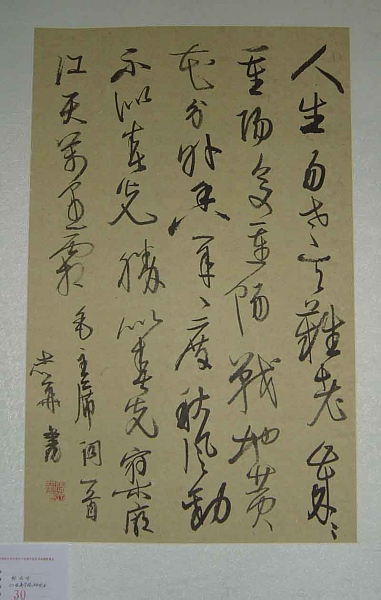 人生易老天難老歲々
重陽今又重陽戰地黃
花分外香一年一度秋風勁
不似春光勝似春光寥廓
江天萬里霜 毛主席詞一首
書
30